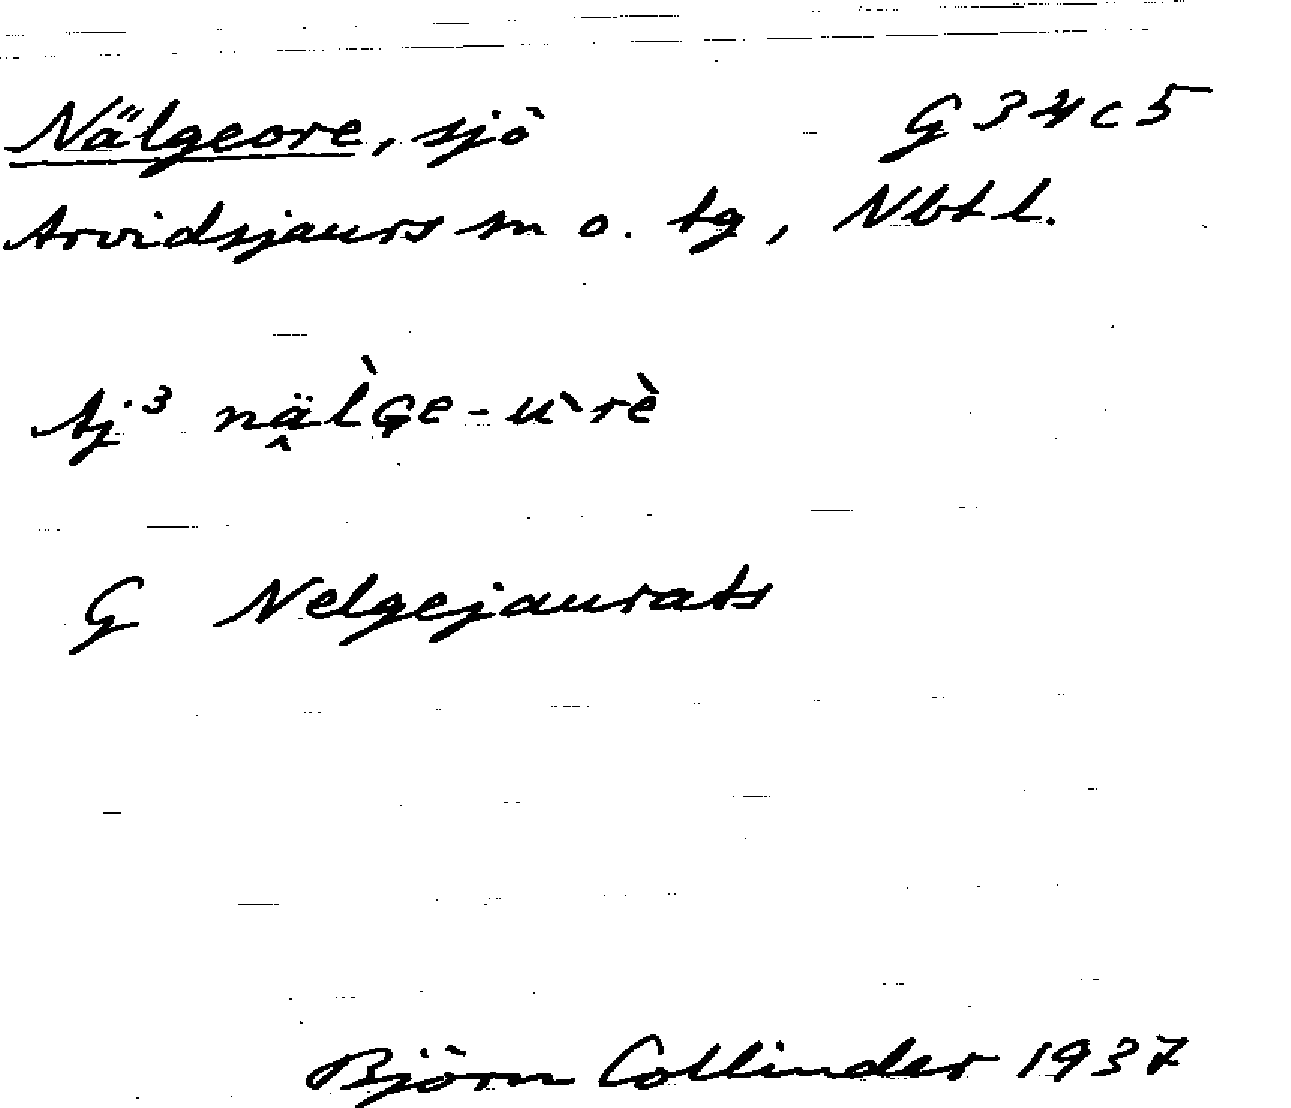 Nälgeore, sjö G 34 c 5
Arvidsjaurs sn o. tg, Nbt l.
Aj³ nä̭l̀Ge-ù rè
G Nelgejaurats
Björn Collinder 1937